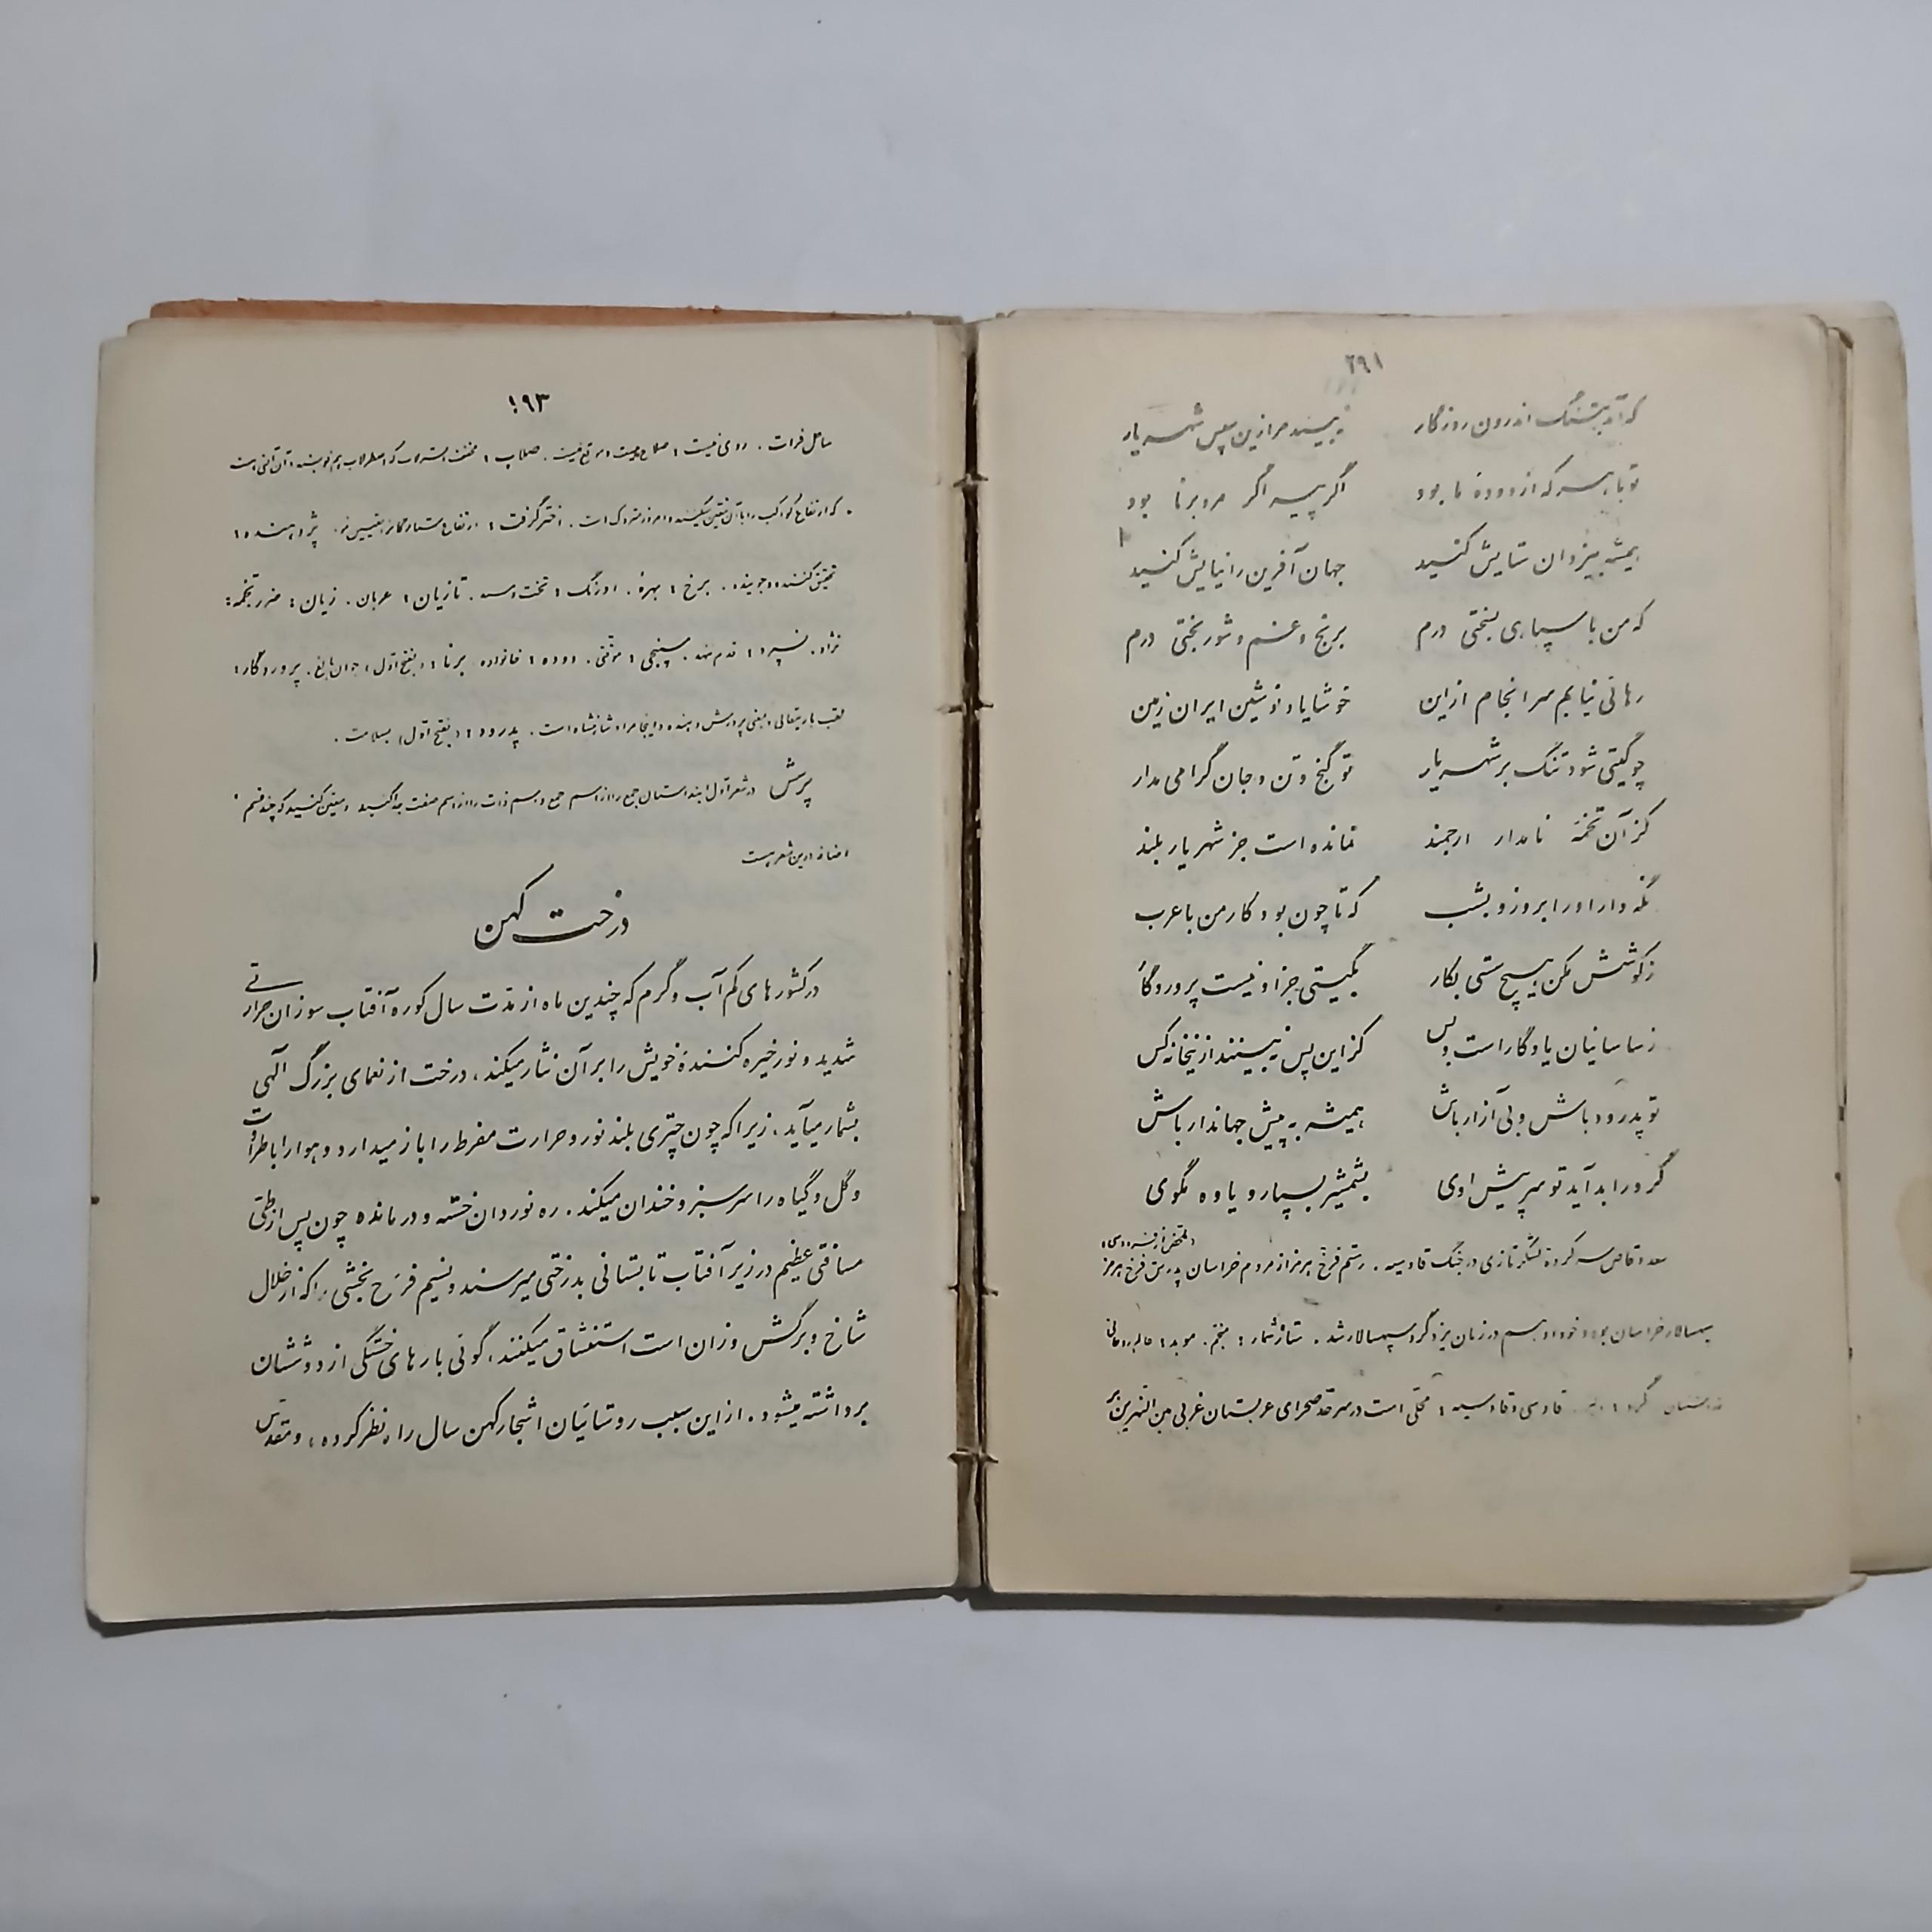 ۱۹۲
که آمد بتنگ اندرون روزگار نبیند مرا زین سپس شهریار
تو با هر که از دودهٔ ما بود اگر پیر اگر مرد برنا بود
همیشه بیزدان ستایش کنید جهان آفرین را نیایش کنید
که من با سپاهی بسختی درم برنج و غم و شوربختی درم
رهائی نیابم سرانجام ازین خوشا باد نوشین ایران زمین
چو گیتی شود تنگ بر شهریار تو گنج و تن و جان گرامی مدار
کز آن تخمهٔ نامدار ارجمند نمانده است جز شهریار بلند
نگه دار او را بروز و بشب که تا چون بود کار من با عرب
ز کوشش مکن هیچ سستی بکار بگیتی جز او نیست پروردگار
ز ساسانیان یادگار است و بس کز این پس نبینند از این تخمه کس
تو پدرود باش و بی آزار باش همیشه به پیش جهاندار باش
گر او را بد آید تو سر پیش اوی بشمشیر بسپار و یاوه مگوی
(ملخص از فردوسی)
سعد وقاص سرکردهٔ لشکر تازی در جنگ قادسیه. رستم فرخ هرمز از مردم خراسان پدرش فرخ هرمز
سپهسالار خراسان بود و خود او هم در زمان یزدگرد سپهسالار شد. ستاره‌شمار: منجم. موبد: عالم روحانی
گرد: قادسی و قادسیه: محلی است در سرحد صحرای عربستان غربی بین النهرین بر
۱۹۳
ساحل فرات. روی نیست: صلاح نیست و موقع نیست. صلاب: مخفف اسطرلاب که اصطرلاب هم نویسند، آن آلتی است
که ارتفاع کواکب را با آن تعیین میکنند و امروز متروک است. اختر گرفت: ارتفاع ستارگان تعیین کرد. پژوهنده:
تحقیق کننده و جوینده. برخ: بهره. اورنگ: تخت. تازیان: عربان. زیان: ضرر. تخمه:
نژاد. نسپرد: قدم ننهد. سپنجی: موقتی. دوده: خانواده. برنا: (بفتح اول) جوان بالغ. پروردگار:
لقب باریتعالی و بمعنی پرورش دهنده و اینجا مراد شاهنشاه است. پدرود: (بفتح اول) بسلامت.
پرسش در شعر اول این داستان جمع را از اسم جمع و اسم ذات را از اسم صفت جدا کنید و معین کنید که چند قسم
اضافه در این شعر هست
درخت کهن
در کشورهای کم آب و گرم که چندین ماه از مدت سال کوره آفتاب سوزان حرارتی
شدید و نور خیره کنندهٔ خویش را بر آن نثار میکند، درخت از نعمای بزرگ الهی
بشمار میآید. زیرا که چون چتری بلند نور و حرارت مفرط را باز میدارد و هوا را با طراوت
و گل و گیاه را سرسبز و خندان میکند. ره نوردان خسته و درمانده چون پس از طی
مسافتی عظیم در زیر آفتاب تابستانی بدرختی میرسند و نسیم فرح بخشی را که از خلال
شاخ و برگش وزان است استنشاق میکنند، گوئی بارهای خستگی از دوششان
برداشته میشود. از این سبب روستائیان اشجار کهن سال را، نظر کرده، و مقدس